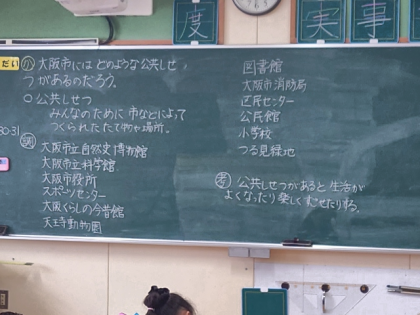 度
実事
だい
大阪市には どのような公共しせ
つがあるのだろう。
○公共しせつ
みんなのために 市などによって
つくられたたて物や場所。
30-31
大阪市立自然史博物館
大阪市立科学館
大阪市役所
スポーツセンター
大阪くらしの今昔館
天王寺動物園
図書館
大阪市消防局
区民センター
公民館
小学校
つる見緑地
考 公共しせつがあると生活が
よくなったり楽しくすごせたりする。